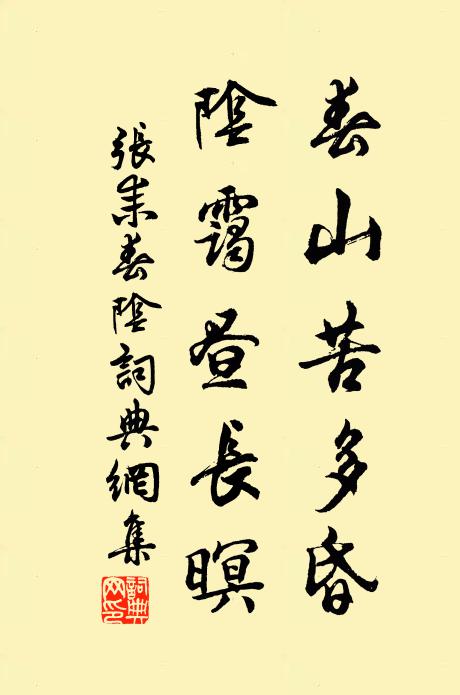 春山苦多昏
陰靄晝長暝
張耒春陰詞典網集
詞典網印